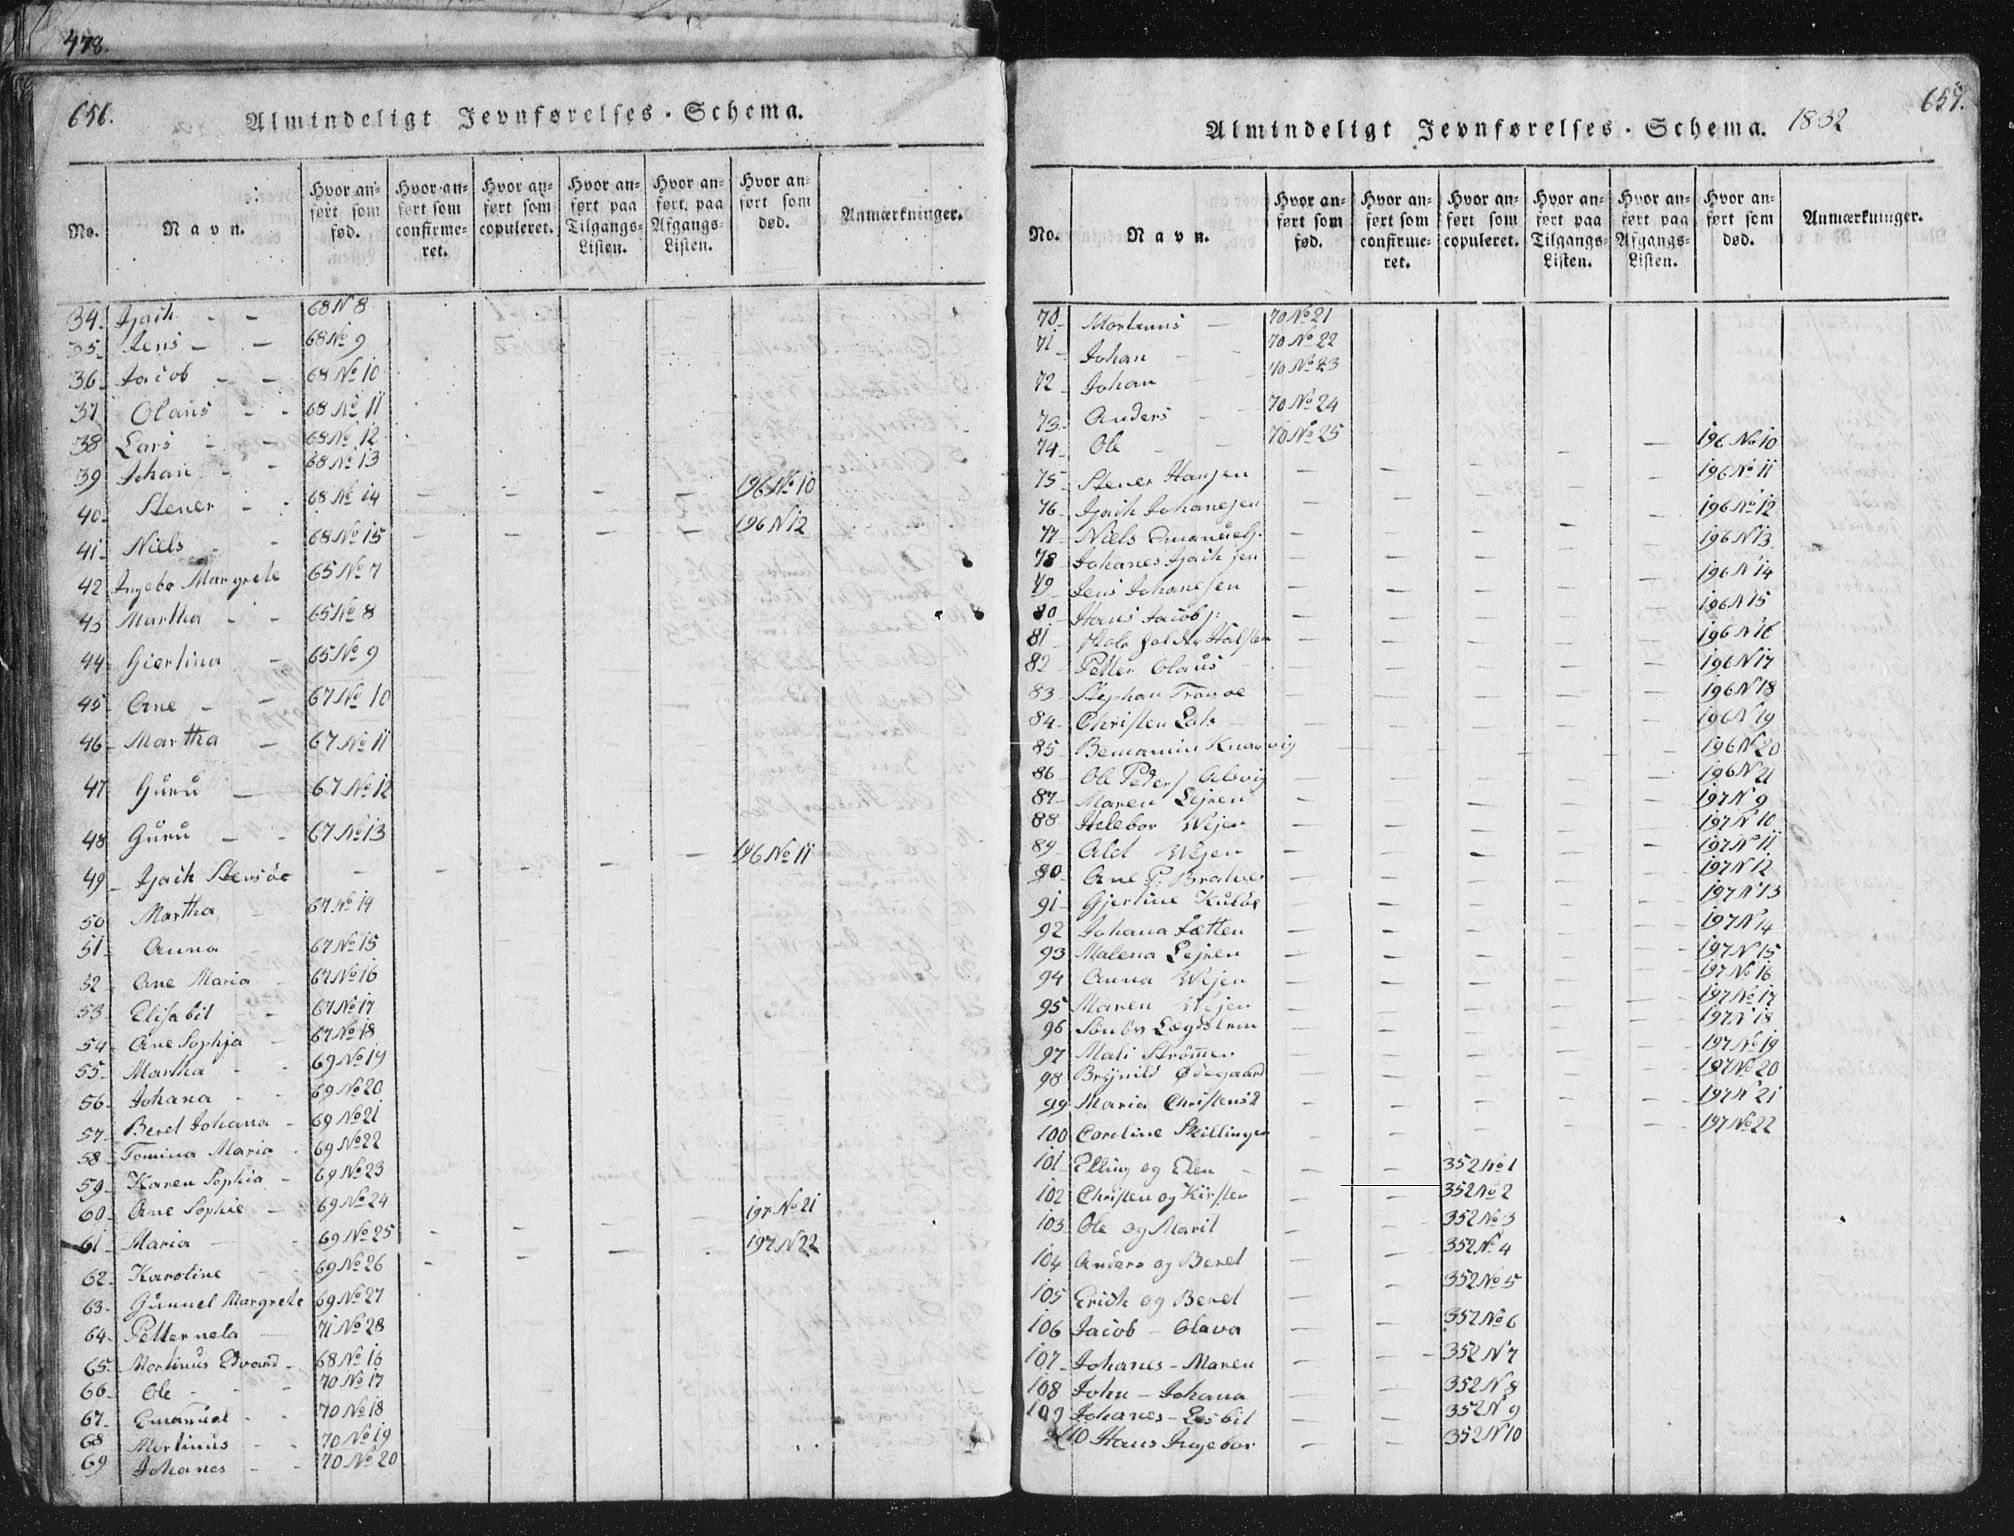 478.
656.
Almindeligt Jevnførelses-Schema.
No.
Navn.
Hvor anført som fød.
Hvor anført som confirmeret.
Hvor anført som copuleret.
Hvor anført paa Tilgangs-Listen.
Hvor anført paa Afgangs-Listen.
Hvor anført som død.
Anmærkninger.
34. - - 68 N 8
35. Jens - - 68 No 9
36. Jacob - - 68 No 10
37 Olaus - - 68 No 11
38 Lars - - 68 No 12
39 Johan - - 68 No 13
40. Stener - - 68 No 14 - - - - 196 No 10
41. Niels - 68 No 15 - - - - 196 N 12
42 Ingebor Margrete 65 No 7
43 Martha - - 65 No 8
44. Giertina - 65 No 9
45 Ane - - 67 No 10
46 Martha - 67 No 11
47 Guru - 67 No 12
48 Guru - - 67 No 13
49 - - - - - - 196 No 11
50 Martha 67 No 14
51 Anna - 67 No 15
52 Ane Maria - 67 No 16
53. Elisabit - 67 No 17
54 Ane Sophja - 67 No 18
55. Martha - - 69 No 19
56. Johana - - 69 No 20
57. Beret Johana - 69 No 21
58 Tomina Maria - 69 No 22
59. Karen Sophia - 69 No 23
60. Ane Sophie - 69 No 24 197 No 21
61 Maria - - 69 No 25 - - - - 197 N 22
62. Karoline - - 69 No 26
63. Gunnel Margrete 69 No 27
64. Petternela - 71 No 28
65. Mortinus Edvard - 68 No 16
66. Ole - - - 70 No 17
67. Emanuel - - 70 No 18
68 Mortinus - - 70 No 19
69 Johanes - - 70 No 20
657.
Almindeligt Jevnførelses-Schema. 1832
No.
Navn.
Hvor anført som fød.
Hvor anført som confirmeret.
Hvor anført som copuleret.
Hvor anført paa Tilgangs-Listen.
Hvor anført paa Afgangs-Listen.
Hvor anført som død.
Anmærkninger.
70 Mortinus - 70 No 21
71 Johan - - 70 No 22
72 Johan - - 70 No 23
73. Anders - 70 No 24
74. Ole - - 70 No 25
75 Stener Hansen - - - - - 196 No 10
76 Johanesen - - - - - 196 No 11
77 Niels - - - - - 196 No 12
78 Johanes - - - - - 196 N 13
79 Jens Johanesen - - - - - 196 N 14
80 Hans Jacobs: - - - - - 196 N 15
81 - - - - - 196 N 16
82 Petter Olaus - - - - - 196 N 17
83 Stephan - - - - - 196 N 18
84 Christen - - - - - 196 N 19
85 - - - - - 196 N 20
86 Ole Peders - - - - - 196 N 21
87 Maren Lejren - - - - - 197 N 9
88 Helebor Wejen - - - - - 197 N 10
89 Wejen - - - - - 197 N 11
90 Ane P. - - - - - 197 N 12
91 Gjertine - - - - - 197 N 13
92 Johana - - - - - 197 N 14
93 Malena Lejren - - - - - 197 N 15
94 Anna Wejen - - - - - 197 No 16
95 Maren Wejen - - - - - 197 No 17
96 - - - - - 197 N 18
97 Mali Strømmen - - - - - 197 No 19
98 Brynild Ødegaard - - - - - 197 No 20
99 Maria Christensd - - - - - 197 N 21
100 Caroline - - - - - 197 No 22
101 Elling og Elen - - 352 No 1
102 Christen og Kirsten - - 352 No 2
103 Ole og Marit - - 352 No 3
104 Anders og Beret - - 352 No 4
105 Erich og Beret - - 352 No 5
106 Jacob - Olava - - 352 No 6
107 Johanes - Maren - - 352 N 7
108 John - Johana - - 352 N 8
109 Johanes - Lisbit - - 352 N 9
110 Hans Ingebor - - 352 N 10